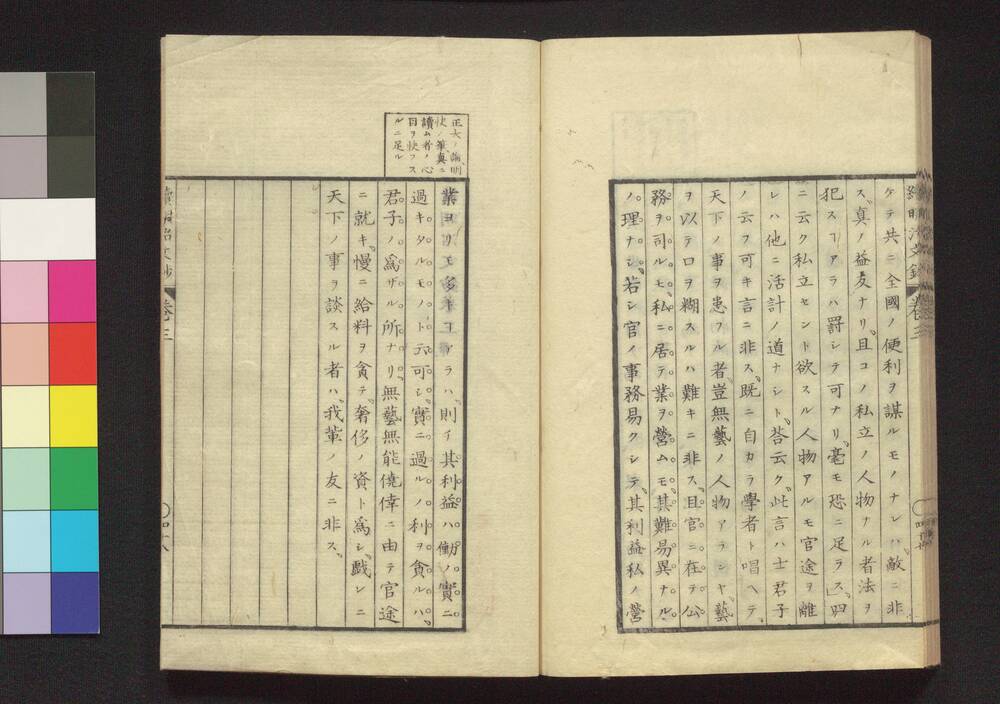 ケテ共ニ全國ノ便利ヲ謀ルモノナレハ敵ニ非
ス真ノ益友ナリ且コノ私立ノ人物ナル者法ヲ
犯スヿアラハ罰シテ可ナリ毫モ恐ニ足ラス」四
ニ云ク私立セント欲スル人物アルモ官途ヲ離
レハ他ニ活計ノ道ナシト荅云ク此言ハ士君子
ノ云フ可キ言ニ非ス既ニ自カラ學者ト唱ヘテ
天下ノ事ヲ患フル者豈無藝ノ人物アランヤ藝
ヲ以テ口ヲ糊スルハ難キニ非ス且官ニ在テ公
務ヲ司ルモ私ニ居テ業ヲ營ムモ其難易異ナル
ノ理ナシ若シ官ノ事務易クシテ其利益私ノ營
正大ノ論明
快ノ筆真ニ
讀ム者ノ心
目ヲ快フス
ルニ足ル
業ヨリモ多キヿアラハ則チ其利益ハ働ノ實ニ
過キタルモノト云可シ實ニ過ルノ利ヲ貪ルハ
君子ノ為ザル所ナリ無藝無能僥倖ニ由テ官途
ニ就キ慢ニ給料ヲ貪テ奢侈ノ資ト為シ戯レニ
天下ノ事ヲ談スル者ハ我輩ノ友ニ非ス
卷三